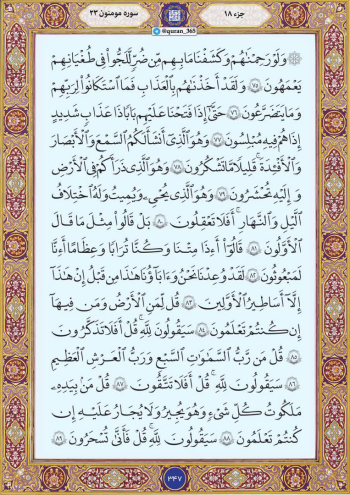 جزء ۱۸
سوره مومنون ۲۳
@quran_365
۞ وَلَوْ رَحِمْنَاهُمْ وَكَشَفْنَا مَا بِهِم مِّن ضُرٍّ لَّلَجُّوا۟ فِى طُغْيَانِهِمْ
يَعْمَهُونَ ﴿٧٥﴾ وَلَقَدْ أَخَذْنَاهُم بِالْعَذَابِ فَمَا اسْتَكَانُوا۟ لِرَبِّهِمْ
وَمَا يَتَضَرَّعُونَ ﴿٧٦﴾ حَتَّىٰٓ إِذَا فَتَحْنَا عَلَيْهِم بَابًا ذَا عَذَابٍ شَدِيدٍ
إِذَا هُمْ فِيهِ مُبْلِسُونَ ﴿٧٧﴾ وَهُوَ الَّذِىٓ أَنشَأَ لَكُمُ السَّمْعَ وَالْأَبْصَارَ
وَالْأَفْـِٔدَةَ ۚ قَلِيلًا مَّا تَشْكُرُونَ ﴿٧٨﴾ وَهُوَ الَّذِى ذَرَأَكُمْ فِى الْأَرْضِ
وَإِلَيْهِ تُحْشَرُونَ ﴿٧٩﴾ وَهُوَ الَّذِى يُحْىِۦ وَيُمِيتُ وَلَهُ اخْتِلَافُ
الَّيْلِ وَالنَّهَارِ ۚ أَفَلَا تَعْقِلُونَ ﴿٨٠﴾ بَلْ قَالُوا۟ مِثْلَ مَا قَالَ
الْأَوَّلُونَ ﴿٨١﴾ قَالُوٓا۟ أَءِذَا مِتْنَا وَكُنَّا تُرَابًا وَعِظَامًا أَءِنَّا
لَمَبْعُوثُونَ ﴿٨٢﴾ لَقَدْ وُعِدْنَا نَحْنُ وَءَابَآؤُنَا هَٰذَا مِن قَبْلُ إِنْ هَٰذَآ
إِلَّآ أَسَاطِيرُ الْأَوَّلِينَ ﴿٨٣﴾ قُل لِّمَنِ الْأَرْضُ وَمَن فِيهَآ
إِن كُنتُمْ تَعْلَمُونَ ﴿٨٤﴾ سَيَقُولُونَ لِلَّهِ ۚ قُلْ أَفَلَا تَذَكَّرُونَ
﴿٨٥﴾ قُلْ مَن رَّبُّ السَّمَٰوَٰتِ السَّبْعِ وَرَبُّ الْعَرْشِ الْعَظِيمِ
﴿٨٦﴾ سَيَقُولُونَ لِلَّهِ ۚ قُلْ أَفَلَا تَتَّقُونَ ﴿٨٧﴾ قُلْ مَنۢ بِيَدِهِۦ
مَلَكُوتُ كُلِّ شَىْءٍ وَهُوَ يُجِيرُ وَلَا يُجَارُ عَلَيْهِ إِن
كُنتُمْ تَعْلَمُونَ ﴿٨٨﴾ سَيَقُولُونَ لِلَّهِ ۚ قُلْ فَأَنَّىٰ تُسْحَرُونَ ﴿٨٩﴾
۳۴۷